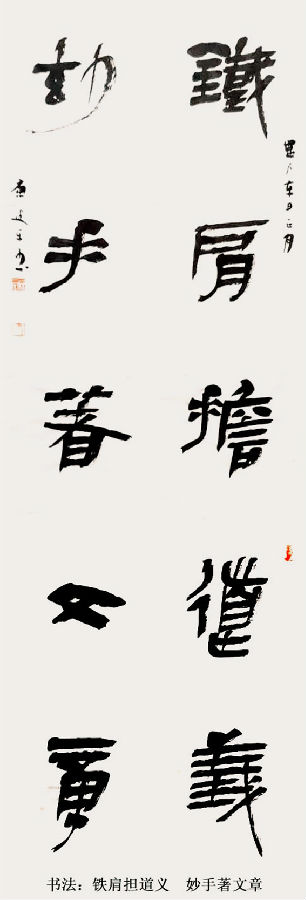 鐵肩擔道義
玅手著文章
书法：铁肩担道义　妙手著文章